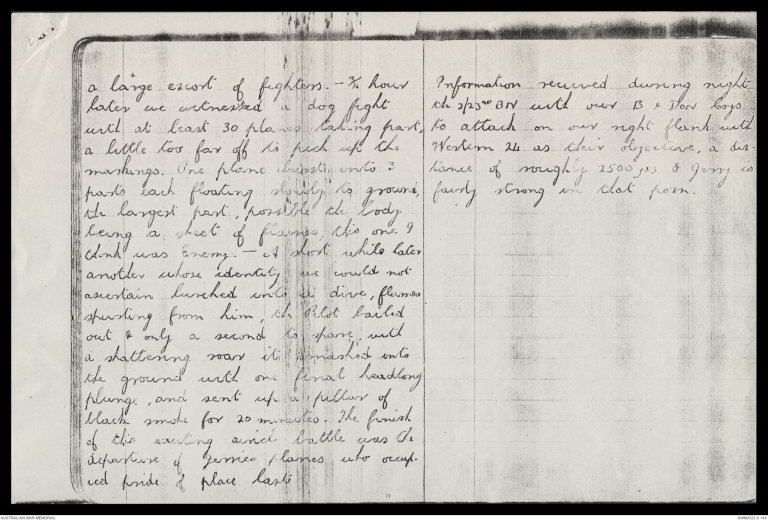 a large escort of fighters. – ¾ hour
later we witnessed a dog fight
with at least 30 planes taking part,
a little too far off to pick up the
markings. One plane burst into 3
parts each floating slowly to ground,
the largest part, possible the body
being a sheet of flames, this one I
think was Enemy. – A short while later
another whose identity we could not
ascertain lurched into a dive, flames
spurting from him, the Pilot bailed
out & only a second to spare, with
a shattering roar it smashed into
the ground with one final headlong
plunge, and sent up a pillar of
black smoke for 20 minutes. The finish
of this exciting airiel battle was the
departure of Jerries planes who occup-
ied pride of place last
Information recieved during night
the 2/23rd BN with our B & Don boys
to attack on our right flank with
Western 24 as their objective, a dis-
tance of roughly 2500 yds & Jerry is
fairly strong in that posn.
AUSTRALIAN WAR MEMORIAL